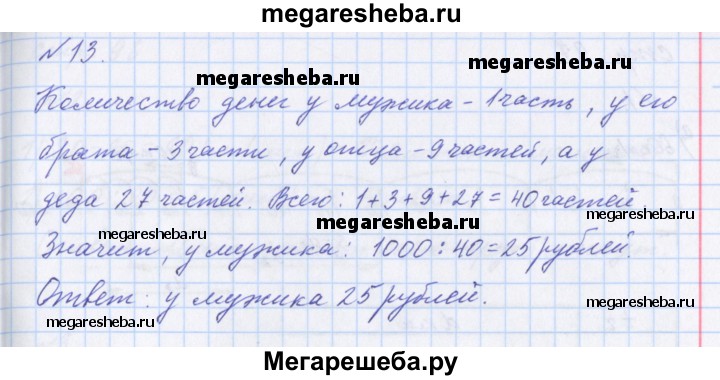 megaresheba.ru
№13.
megaresheba.ru
Количество денег у мужика - 1 часть, у его
брата - 3 части, у отца - 9 частей, а у
megaresheba.ru
деда 27 частей. Всего: 1 + 3 + 9 + 27 = 40 частей
megaresheba.ru
megaresheba.ru
megaresheba.ru
Значит, у мужика: 1000 : 40 = 25 рублей.
Ответ: у мужика 25 рублей.
megaresheba.ru
megaresheba.ru
Мегарешеба.ру